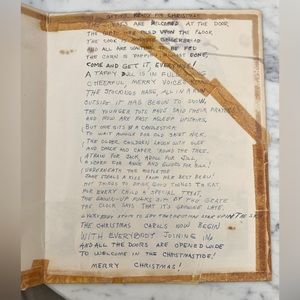 GETTING READY FOR CHRISTMAS
THE GUESTS ARE WELCOMED AT THE DOOR
THE GIFTS ARE PILED UPON THE FLOOR
THE COOK IS GINGERBREAD
AND ALL ARE WAITING TO BE FED
THE CORN IS POPPING, ALMOST DONE,
COME AND GET IT, EVERYONE!
A TAFFY PULL IS IN FULL SWING
CHEERFUL, MERRY VOICES RING
THE STOCKINGS HANG ALL IN A ROW
OUTSIDE IT HAS BEGUN TO SNOW.
THE YOUNGER TOTS HAVE SAID THEIR PRAYERS
AND NOW ARE FAST ASLEEP UPSTAIRS,
BUT ONE SITS BY A CANDLESTICK
TO WAIT AWHILE FOR OLD SAINT NICK.
THE OLDER CHILDREN LAUGH WITH GLEE
AND DANCE AND CAPER 'ROUND THE TREE,
A FOR JACK, A DOLL FOR JILL
A FOR ANNE AND FOR BILL!
UNDERNEATH THE MISTLETOE
JANE STEALS A KISS FROM HER BEST BEAU!
HOT THINGS TO DRINK, GOOD THINGS TO EAT
FOR EVERY CHILD A SPECIAL TREAT.
THE GROWN-UP FOLKS SIT BY THE GRATE
THE CLOCK SAYS THAT IT'S GROWING LATE.
EVERYBODY STOPS TO SEE THE STAR UPON THE
THE CHRISTMAS CAROLS NOW BEGIN
WITH EVERYBODY JOINING IN
AND ALL THE DOORS ARE OPENED WIDE
TO WELCOME IN THE CHRISTMASTIDE!
MERRY CHRISTMAS!